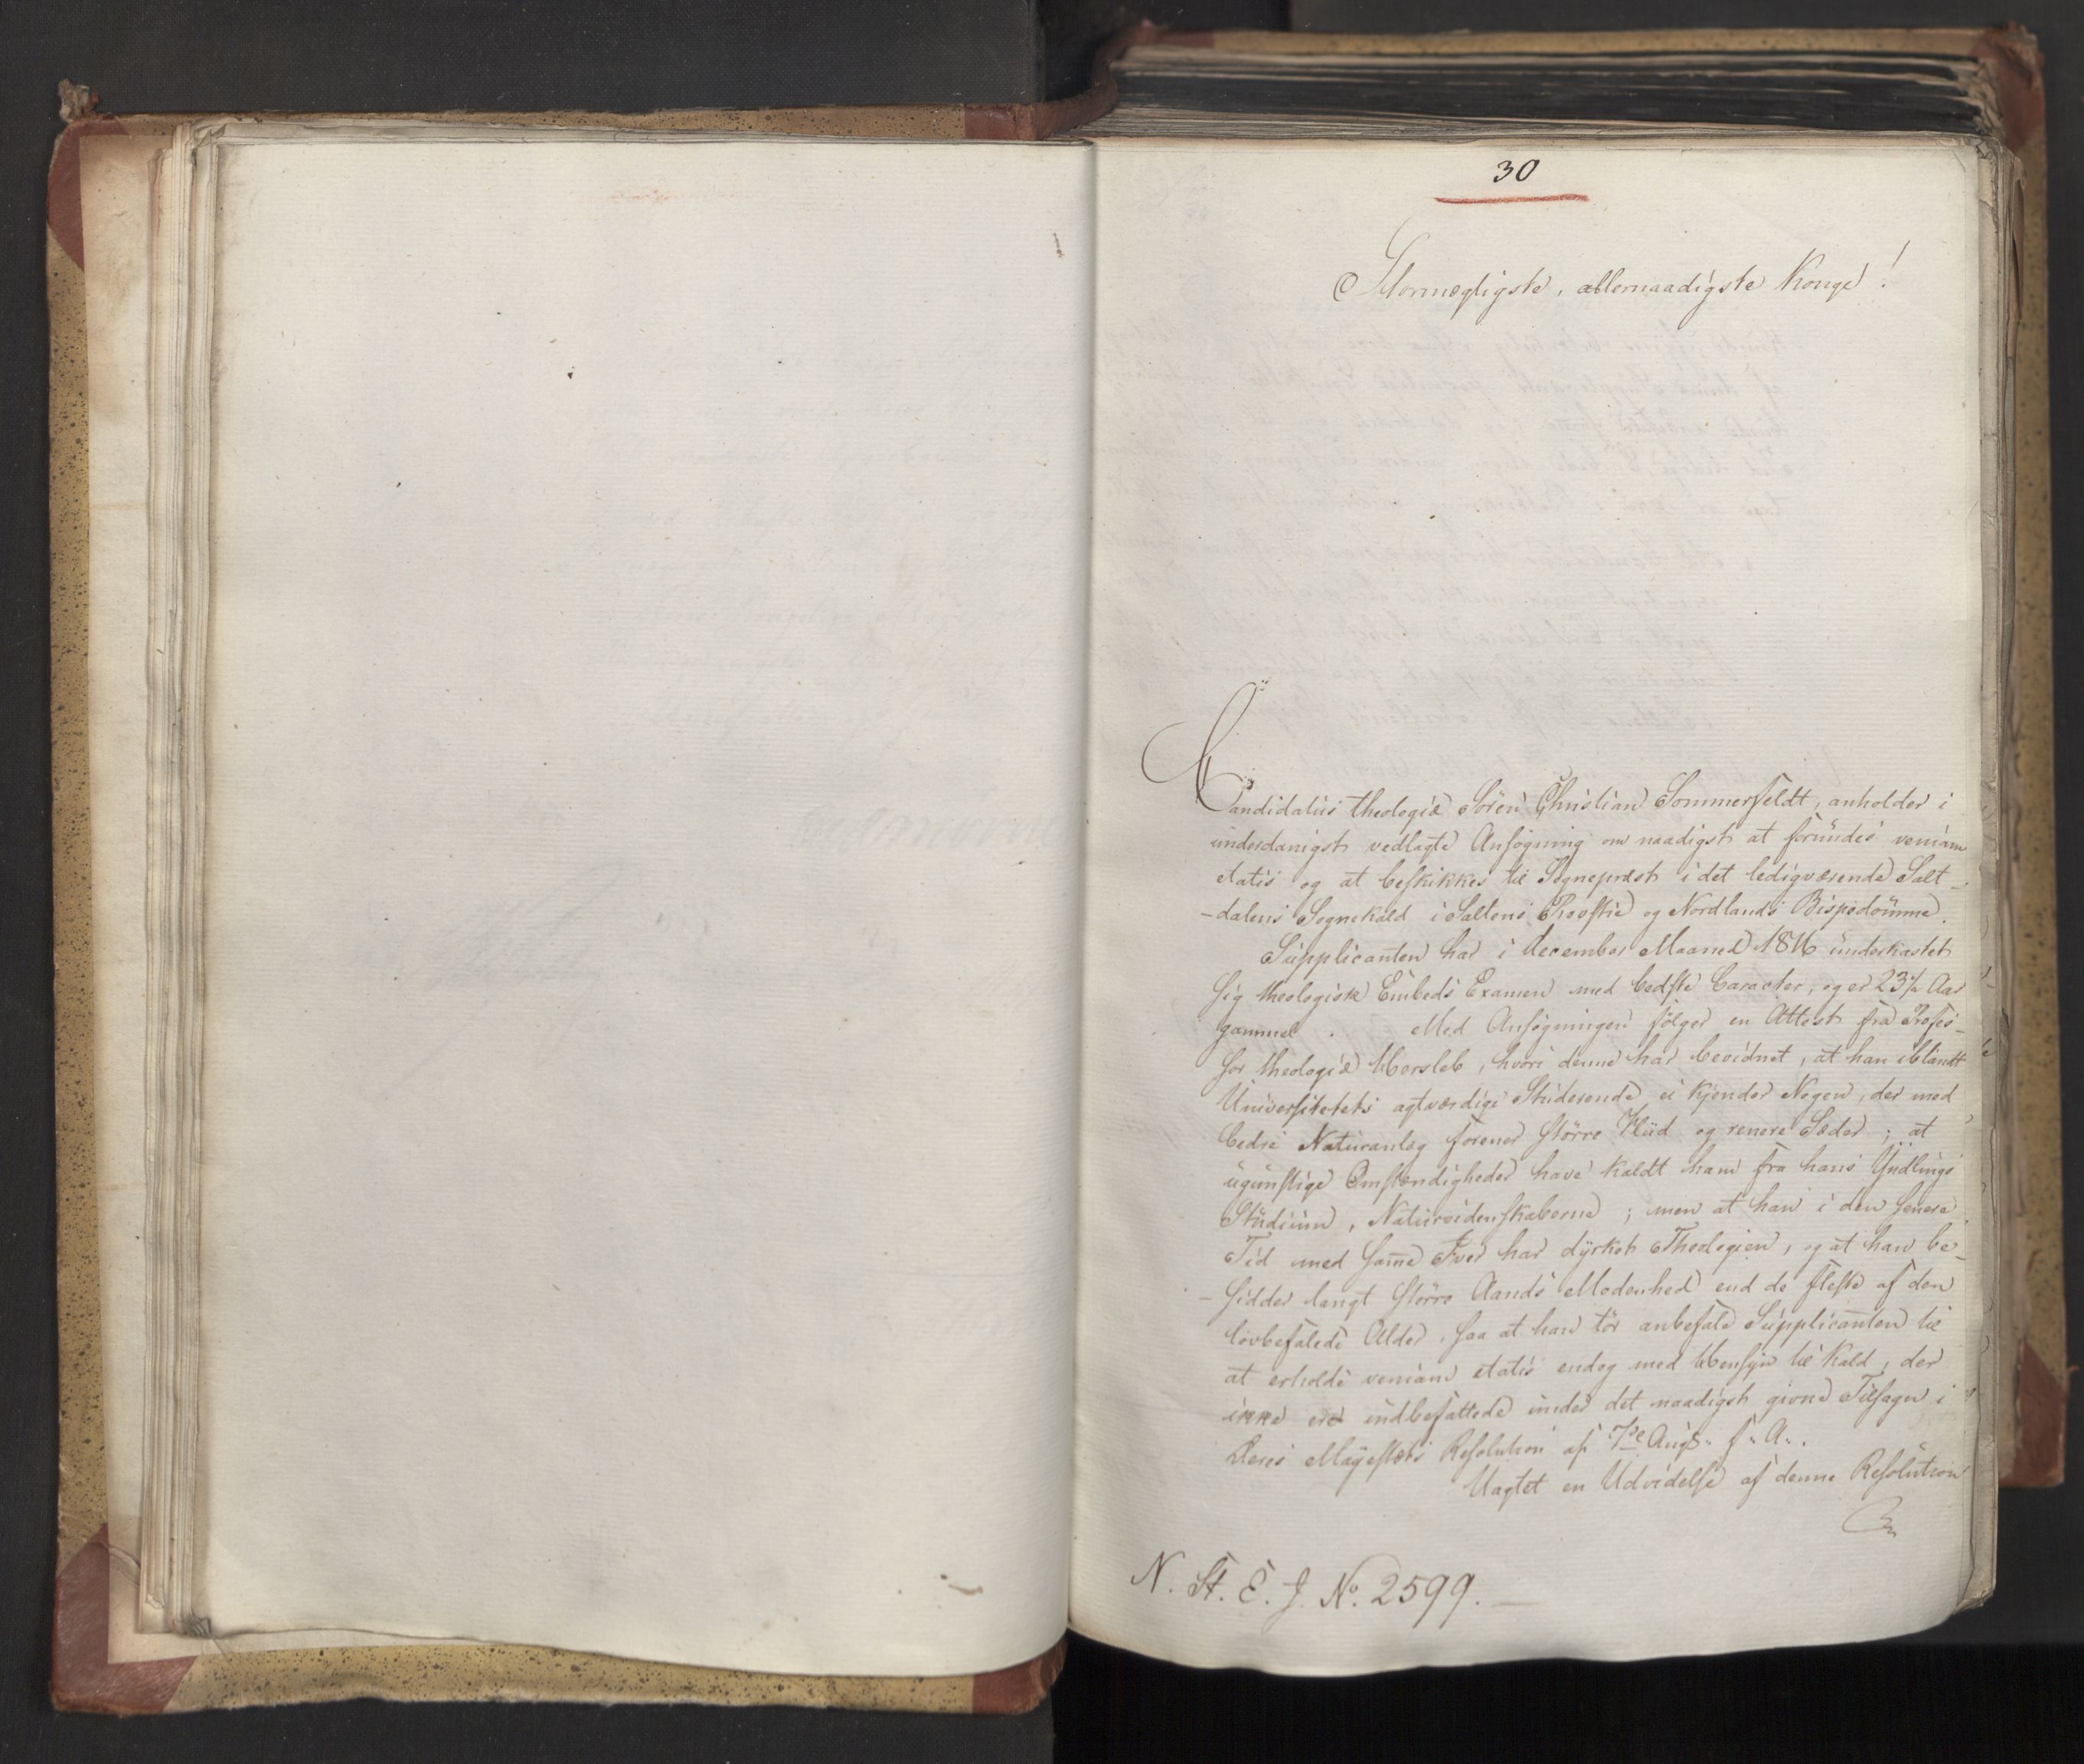 30
Stormægtigste, allernaadigste Konge!
Candidatus theologiæ Sören Christian Sommerfeldt, anholder i
underdanigst vedlagte Ansøgning om naadigst at forundes veniam
ætatis og at beskikkes til Sognepræst i det ledigværende Salt-
-dalens Sognekald i Saltens Provstie og Nordlands Bispedömme.
Supplicanten har i December Maaned 1816 underkastet
sig theologisk Embeds Examen med bedste Caracter, og er 23½ Aar
gammel. Med Ansøgningen følger en Attest fra Profes-
sor theologiæ Hersleb, hvori denne har bevidnet, at han iblandt
Universitetets agtværdige Studerende ei kjender Nogen, der med
bedre Naturanlæg forener større Fliid og renere Sæder; at
ugunstige Omstændigheder have kaldt ham fra hans Yndlings
Studium, Naturvidenskaberne; men at han i den senere
Tid med samme Iver har dyrket Theologien, og at han be-
-sidder langt større Aands Modenhed end de fleste af den
lovbefalede Alder, saa at han tør anbefale Supplicanten til
at erholde veniam ætatis endog med Hensyn til Kald, der
ikke ere indbefattede under det naadigst givne Tilsagn i
Deres Majestæts Resolution af 7de Aug. f. A.
Uagtet en Udvidelse af denne Resolution
N. St. E. J. No. 2599.